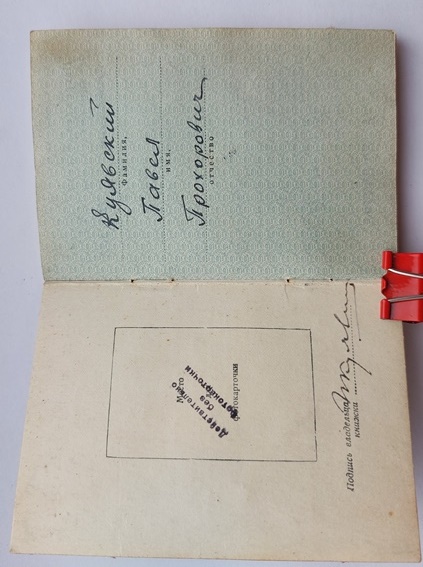 Кулявский
Фамилия,
Павел
имя,
Прохорович
отчество
Место
фотокарточки
Действительно
без
фотокарточки
Подпись владельца
книжки